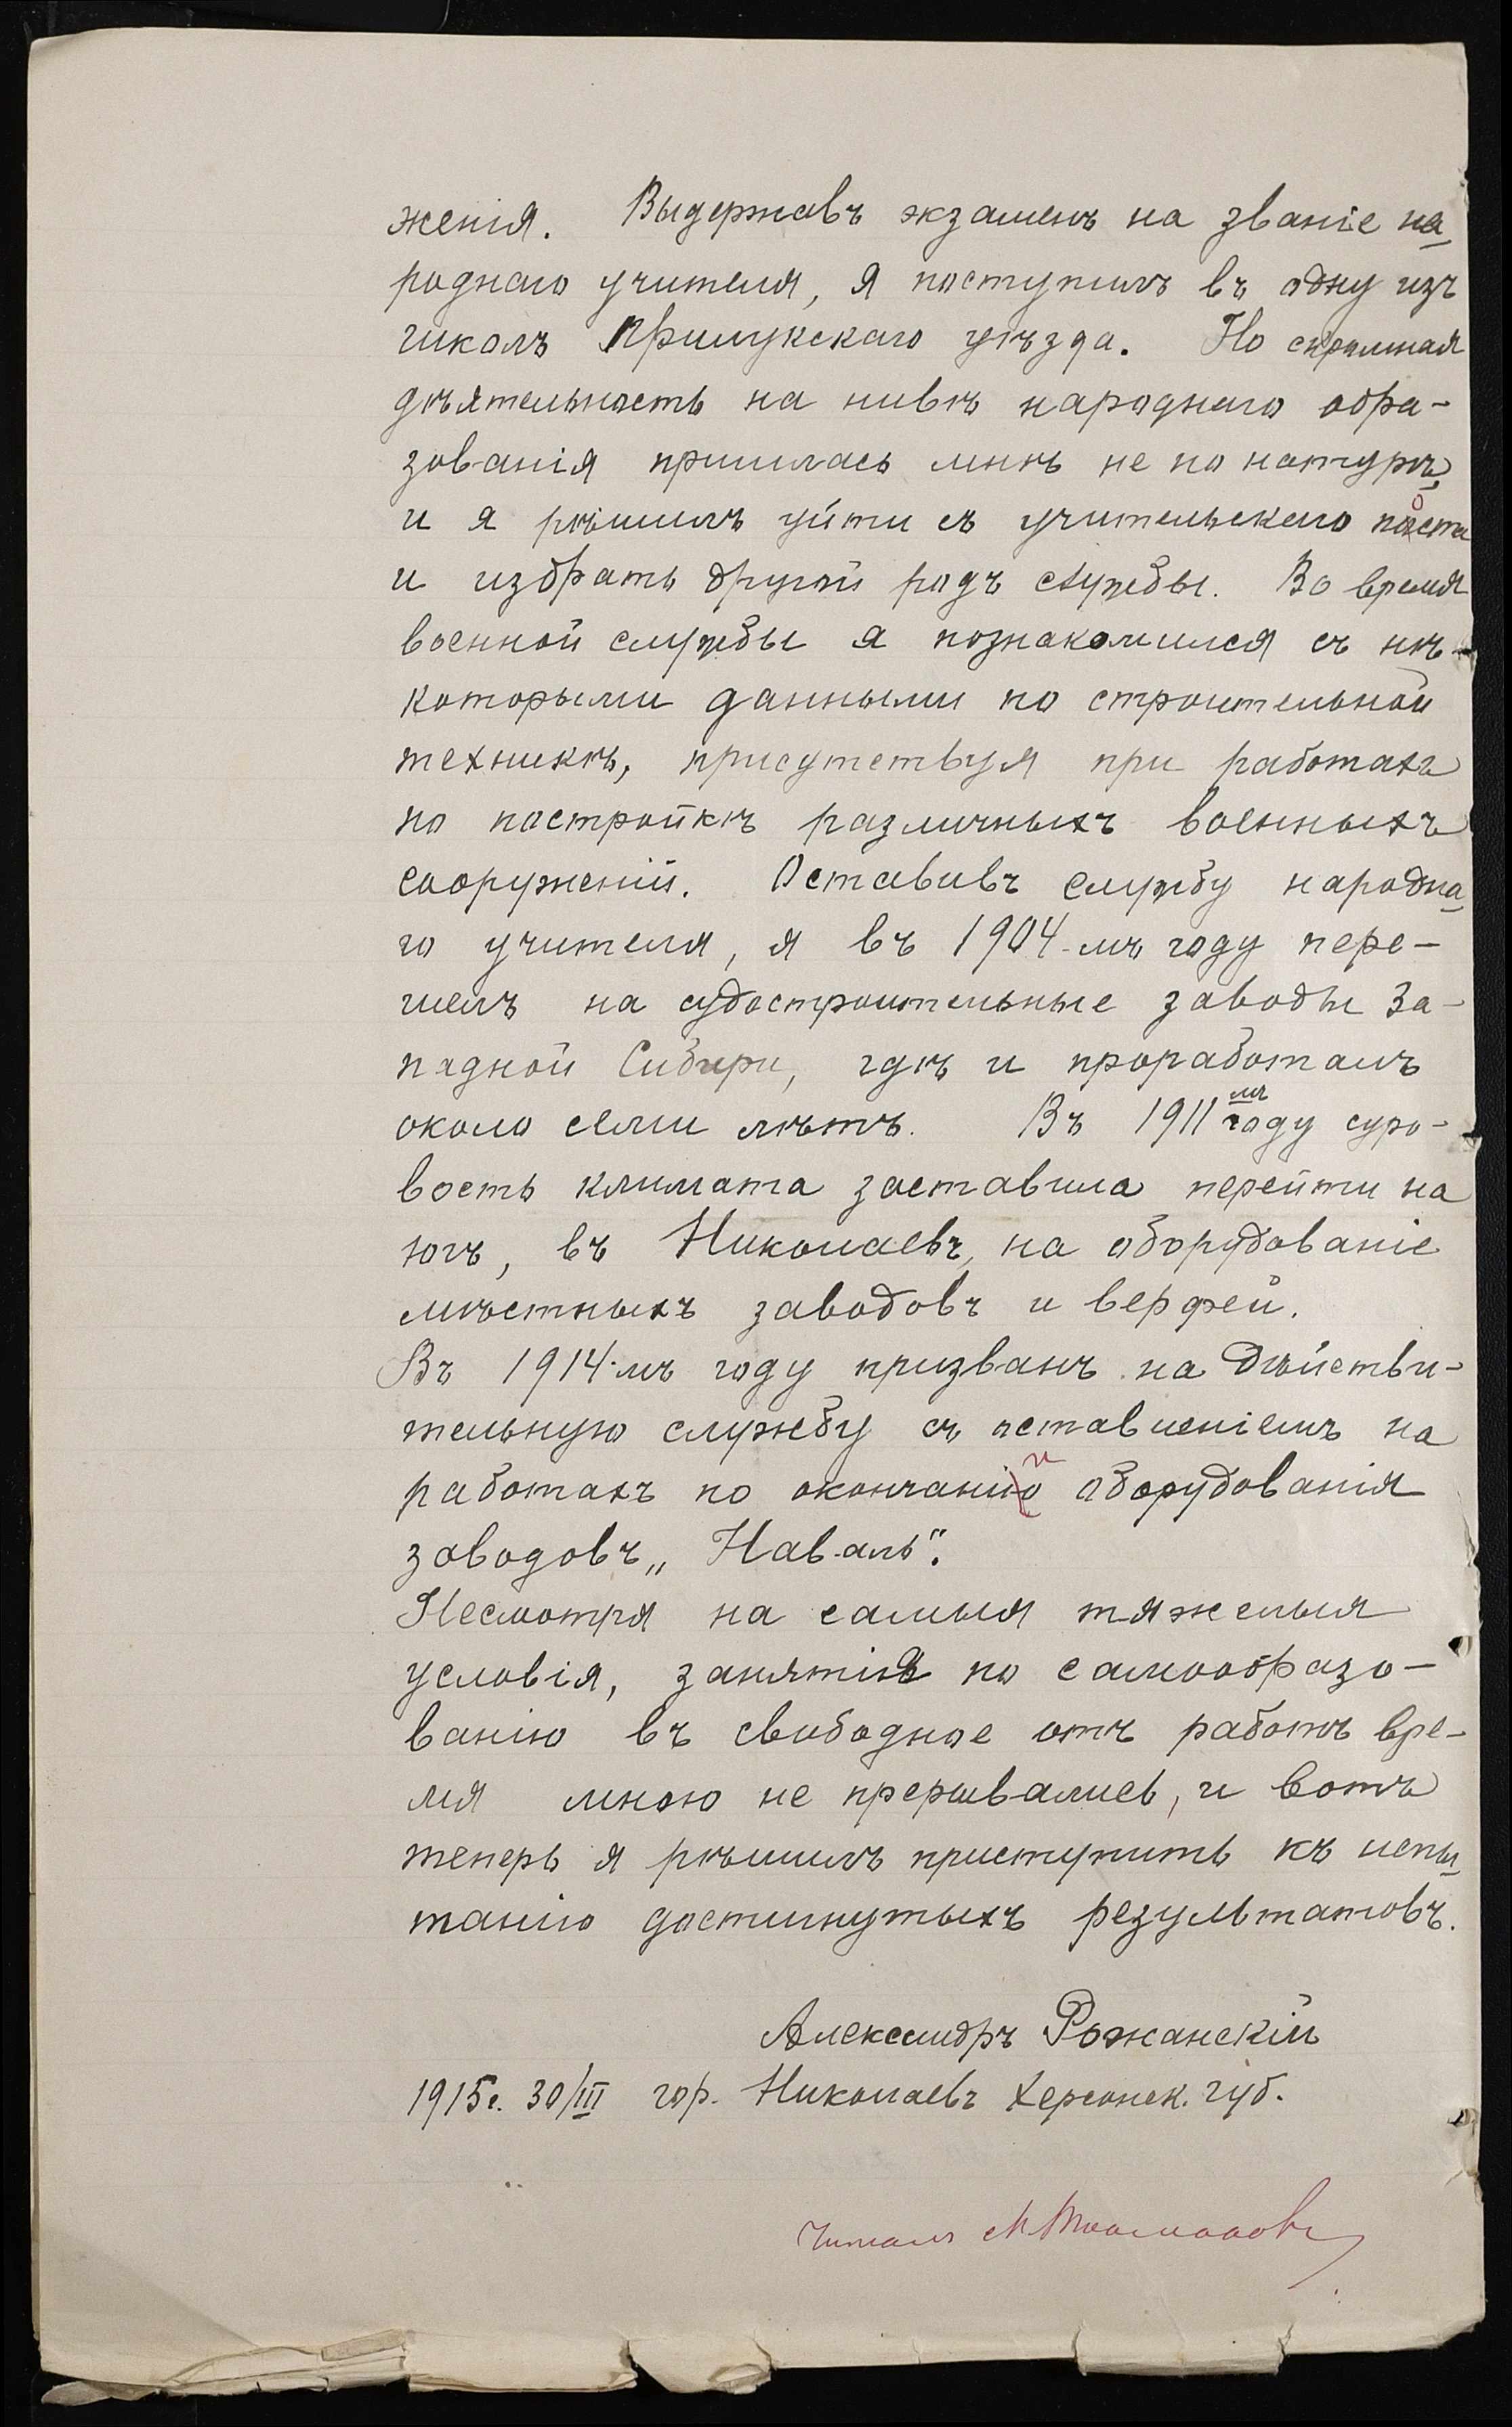 женія. Выдержавъ экзаменъ на званіе на
роднаго учителя, я поступилъ въ одну изъ
школъ Прилукскаго уѣзда. Но скромная
дѣятельность на нивѣ народнаго обра-
зованія пришлась мнѣ не по натурѣ,
и я рѣшилъ уйти съ учительскаго поста
и избрать другой родъ службы. Во время
военной службы я познакомился съ нѣ-
которыми данными по строительной
техникѣ, присутствуя при работахъ
по постройкѣ различныхъ военныхъ
сооруженій. Оставивъ службу народна
го учителя, я въ 1904-мъ году пере-
шелъ на судостроительные заводы За-
падной Сибири, гдѣ и проработалъ
около семи лѣтъ. Въ 1911мъ году суро-
вость климата заставила перейти на
югъ, въ Николаевъ, на оборудованіе
мѣстныхъ заводовъ и верфей.
Въ 1914-мъ году призванъ на дѣйстви-
тельную службу съ оставленіемъ на
работахъ по окончаніи оборудованія
заводовъ „Наваль".
Несмотря на самыя тяжелыя
условія, занятія по самообразо-
ванію въ свободное отъ работъ вре-
мя мною не прерывались, и вотъ
теперь я рѣшилъ приступить къ испы
танію достигнутыхъ результатовъ.
Александръ Рожанскій
1915г. 30/III гор. Николаевъ Херсонск. губ.
Читалъ